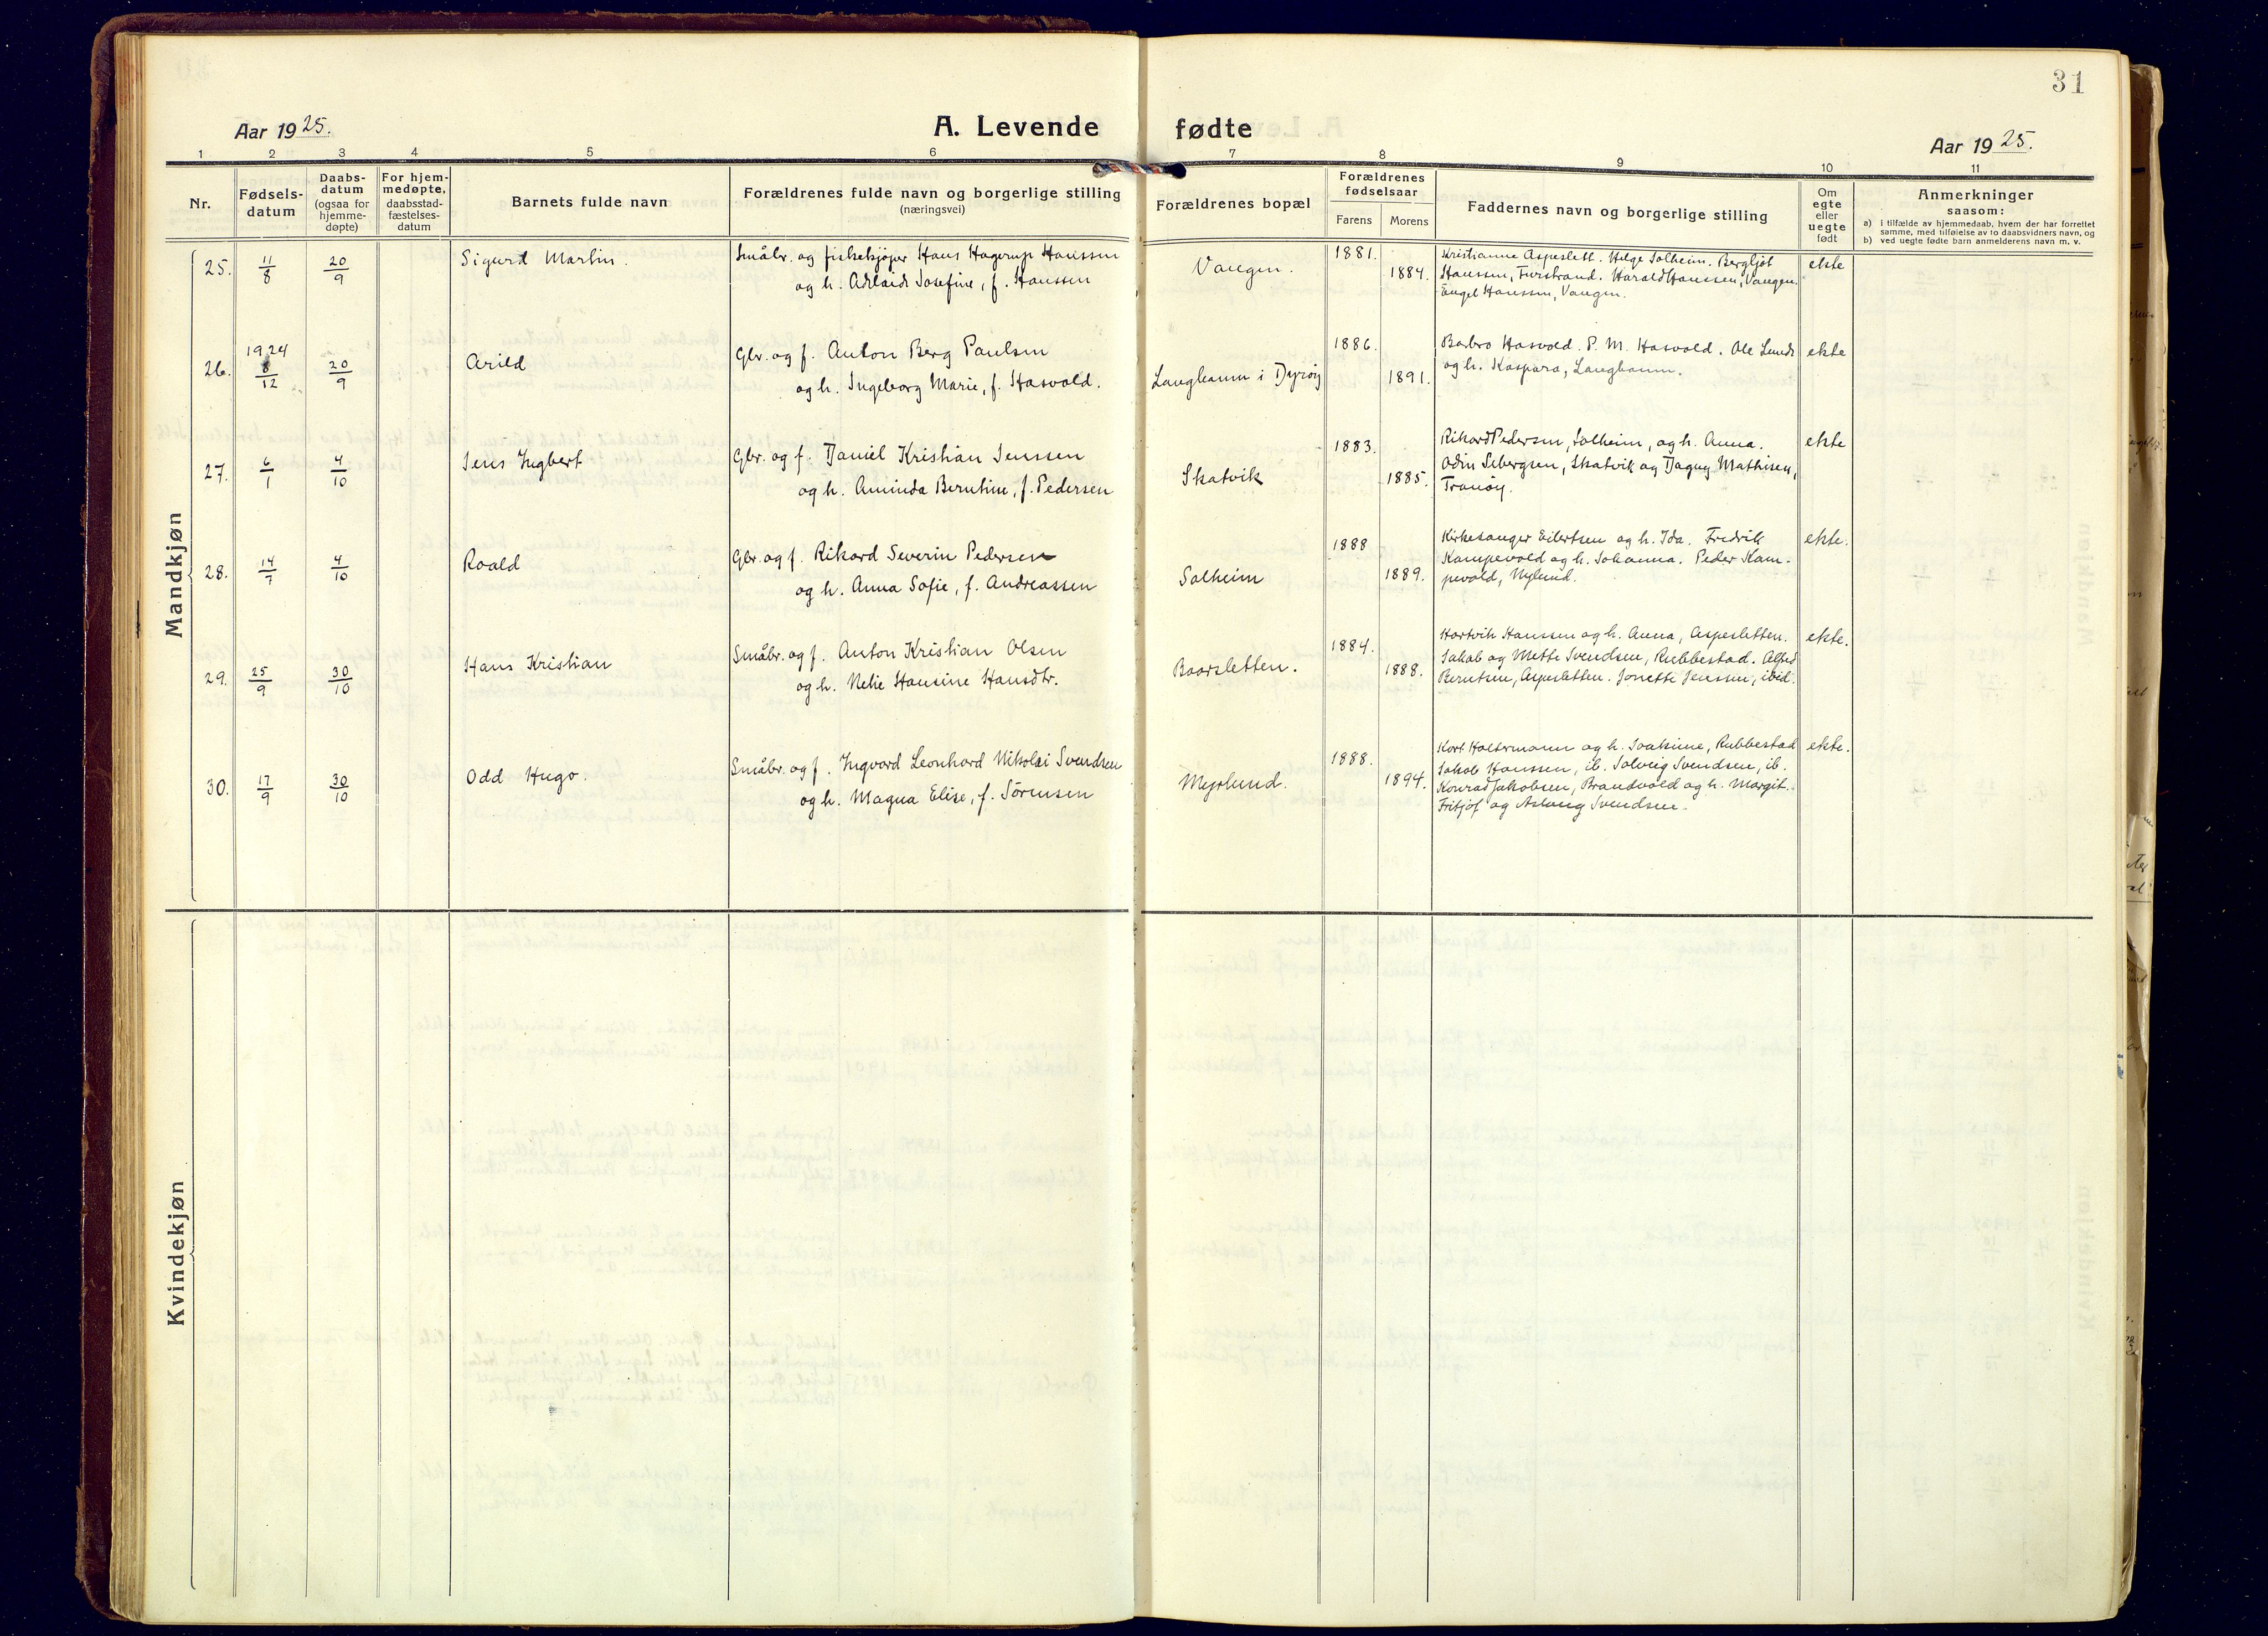 31
Aar 1925.
A. Levende fødte
Aar 1925.
1 2 3 4 5 6 7 8 9 10 11
Nr.
Fødsels-
datum
Daabs-
datum
(ogsaa for
hjemme-
døpte)
For hjem-
medøpte,
daabsstad-
fæstelses-
datum
Barnets fulde navn
Forældrenes fulde navn og borgerlige stilling
(næringsvei)
Forældrenes bopæl
Forældrenes
fødselsaar
Farens Morens
Faddernes navn og borgerlige stilling
Om
egte
eller
uegte
født
Anmerkninger
saasom:
a) i tilfælde av hjemmedaab, hvem der har forrettet
samme, med tilføielse av to daabsvidners navn, og
b) ved uegte fødte barn anmelderens navn m. v.
Mandkjøn
25. 11/8 20/9 Sigurd Martin.
Småbr. og fiskekjøper Hans Hagerup Hanssen
og h. Adelaide Josefine, f. Hanssen
Vangen.
1881.
1884.
Kristianne Aspeslett. Helge Solheim. Bergljot
Hanssen, Furstrand. Harald Hanssen, Vangen.
Engel Hanssen, Vangen.
ekte
26. 1924 8/12 20/9 Arild
Gbr. og f. Anton Berg Paulsen
og h. Ingeborg Marie, f. Hasvold.
Langhamn i Dyrøy
1886.
1891.
Barbro Hasvold. P. M. Hasvold. Ole Lunde
og h. Kaspara, Langhamn.
ekte
27. 6/1 4/10 Jens Ingbert
Gbr. og f. Daniel Kristian Jenssen
og h. Aminda Berntine, f. Pedersen
Skatvik
1883.
1885.
Rikard Pedersen, Solheim, og h. Anna.
Odin Sebergsen, Skatvik og Dagny Mathisen,
Tranöy.
ekte
28. 14/7 4/10 Roald
Gbr. og f. Rikard Severin Pedersen
og h. Anna Sofie, f. Andreassen
Solheim
1888
1889.
Kirkesanger Eilertsen og h. Ida. Fredrik
Kampevold og h. Johanna. Peder Kam-
pevold, Nylund.
ekte.
29. 25/9 30/10 Hans Kristian
Småbr. og f. Anton Kristian Olsen
og h. Nelie Hansine Hansdtr.
Baarsletten.
1884.
1888.
Hartvik Hanssen og h. Anna, Aspesletten.
Jakob og Mette Svendsen, Rubbestad. Alfred
Berntsen, Aspesletten. Jonette Jenssen, ibid.
ekte.
30. 17/9 30/10 Odd Hugo.
Småbr. og f. Ingvard Leonhard Nikolai Svendsen
og h. Magna Elise, f. Sörensen
Myrlund.
1888.
1894.
Karl Holtermann og h. Joakime, Rubbestad
Jakob Hanssen, ib. Solveig Svendsen, ib.
Konrad Jakobsen, Brandvold og h. Margit.
Fritjof og Aslaug Svendsen.
ekte.
Kvindekjøn